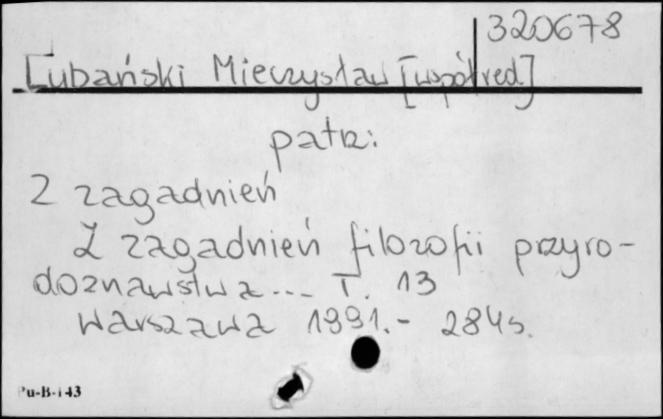 320678
Lubański Mieczysław [współred.]
patrz:
Z zagadnień
Z zagadnień filozofii przyro-
doznawstwa... T. 13
Warszawa 1991.- 284s.
Pu-B-143